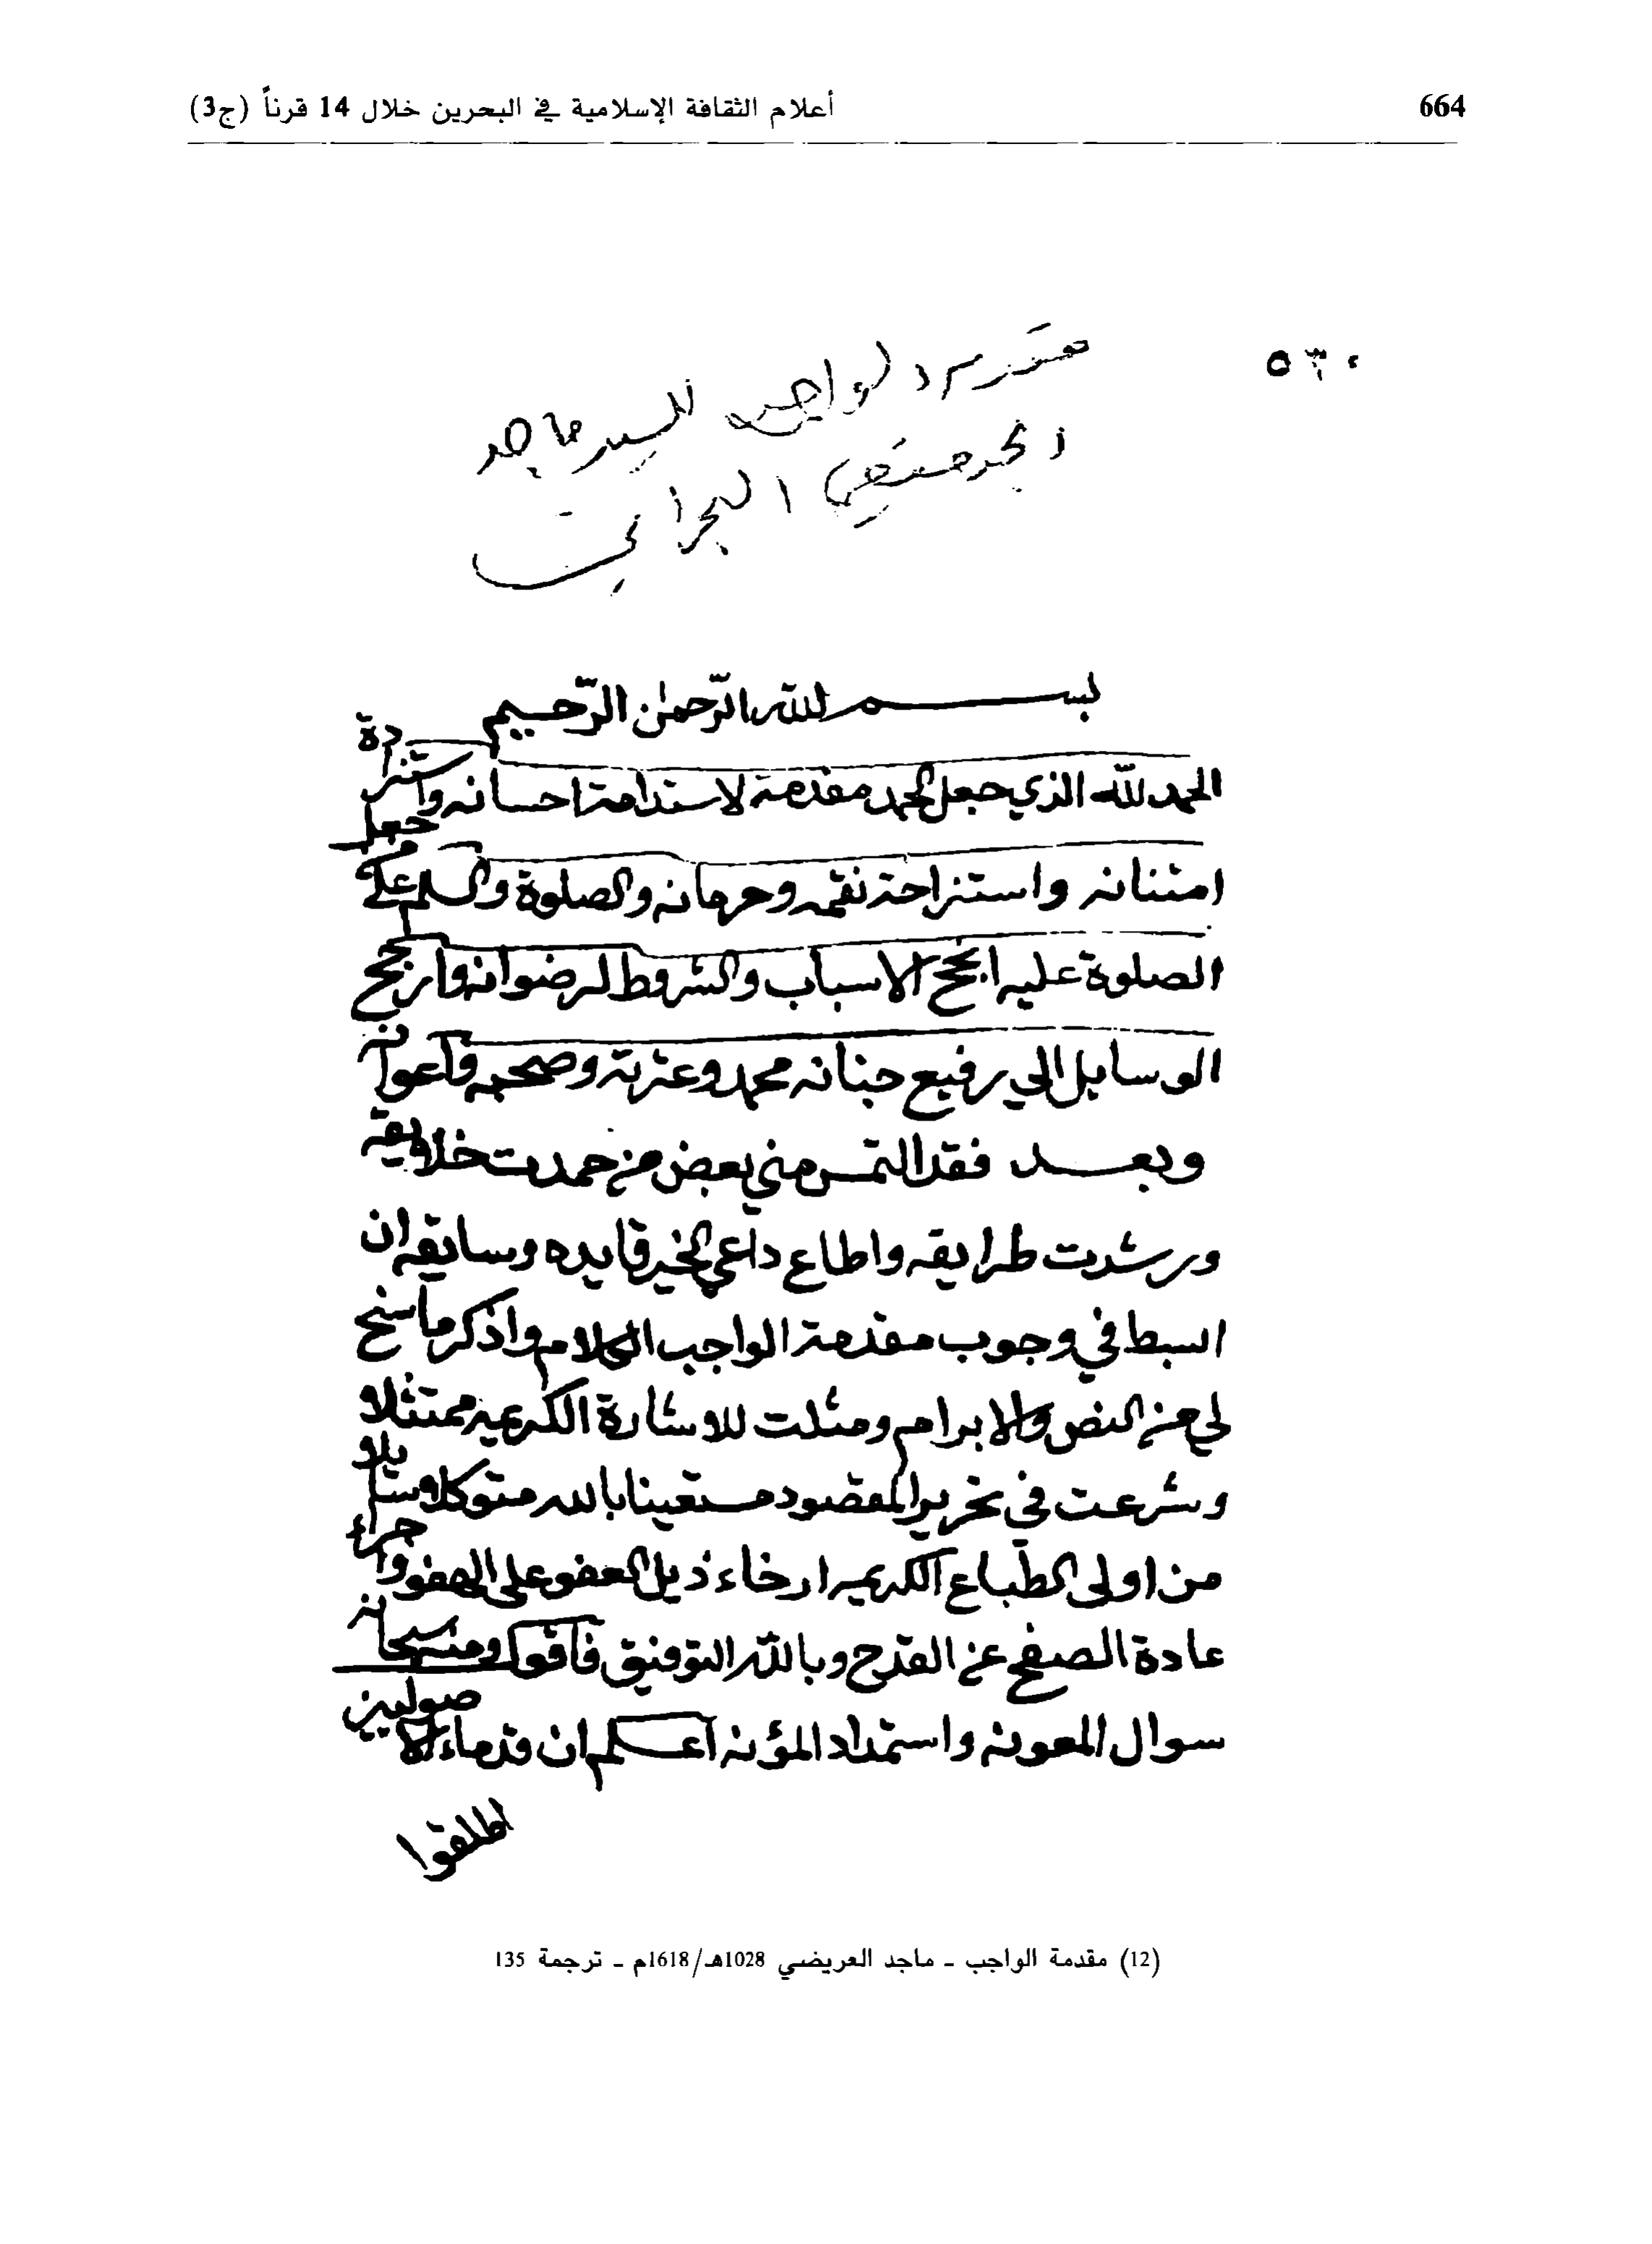 664
أعلام الثقافة الإسلامية في البحرين خلال 14 قرناً (ج3)
مقدمة الواجب للسيد ماجد
البحراني
بسم الله الرحمن الرحيم
الحمد لله الذي جعل الحمد مقدمة لاستدامة احسانه واستزادة
امتنانه واستزاحة نقمه وحرمانه والصلوة والسلم على من جعل
الصلوة عليه انجح الاسباب والشروط لرضوانه وارجح
الوسايل الي رفيع جنانه محمد وعترته وصحبه واعوانه
وبعد فقد التمس مني بعض من حمدت خلايقه
ورشدت طرايقه واطاع داعي الخير قايده وسايقه ان
ابسط في وجوب مقدمة الواجب الكلام واذكر ما سنح
لي من النقض والابرام ومثلت للاشارة الكريمه ممتثلا
وشرعت في تحرير المقصود مستعينا بالله متوكلا وسايلا
من اولى الطباع الكريمه ارخاء ذيل العفو على الهفو واجراء
عادة الصفح عن القدح وبالله التوفيق فاقول ومنه سبحانه
سوال المعونه واستمداد المؤنه اعلم ان قدماء الاصوليين
اطلقوا
(12) مقدمة الواجب - ماجد العريضي 1028هـ/1618م - ترجمة 135